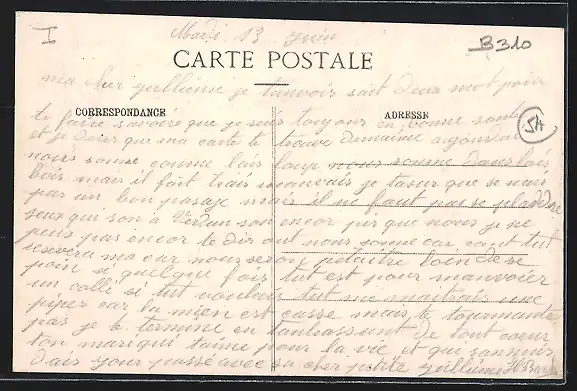 I
Mardi 13 Juin
B310
CARTE POSTALE
ma cher guillione je tanvoir sait deux mot pour
CORRESPONDANCE
ADRESSE
54
te faire savoire que je suis toujour en bonne santé
et je désire que ma carte te trouve de maième aojourdui
nous somme comme lais loup nous somme dans lais
bois mais il fait trais mauvais je tasur que se nais
pas un bon pasage mais il ne faut pas se plaindre
seux qui son a Verdun son encor pir que nous je ne
peux pas encor te dir out nous somme car va et tut
resevera ma car nous seron peutaitre loin de se
poise si quelque fois tut est pour manvoier
un collé si tut voulais tut me maitrais une
pipes car la mien est casse mais te tourmante
pas je te termine en tanbrassant de tout coeur
ton mari qui taime pour la vie et que sannuis
dais jour passé avec sa cher petite guillione